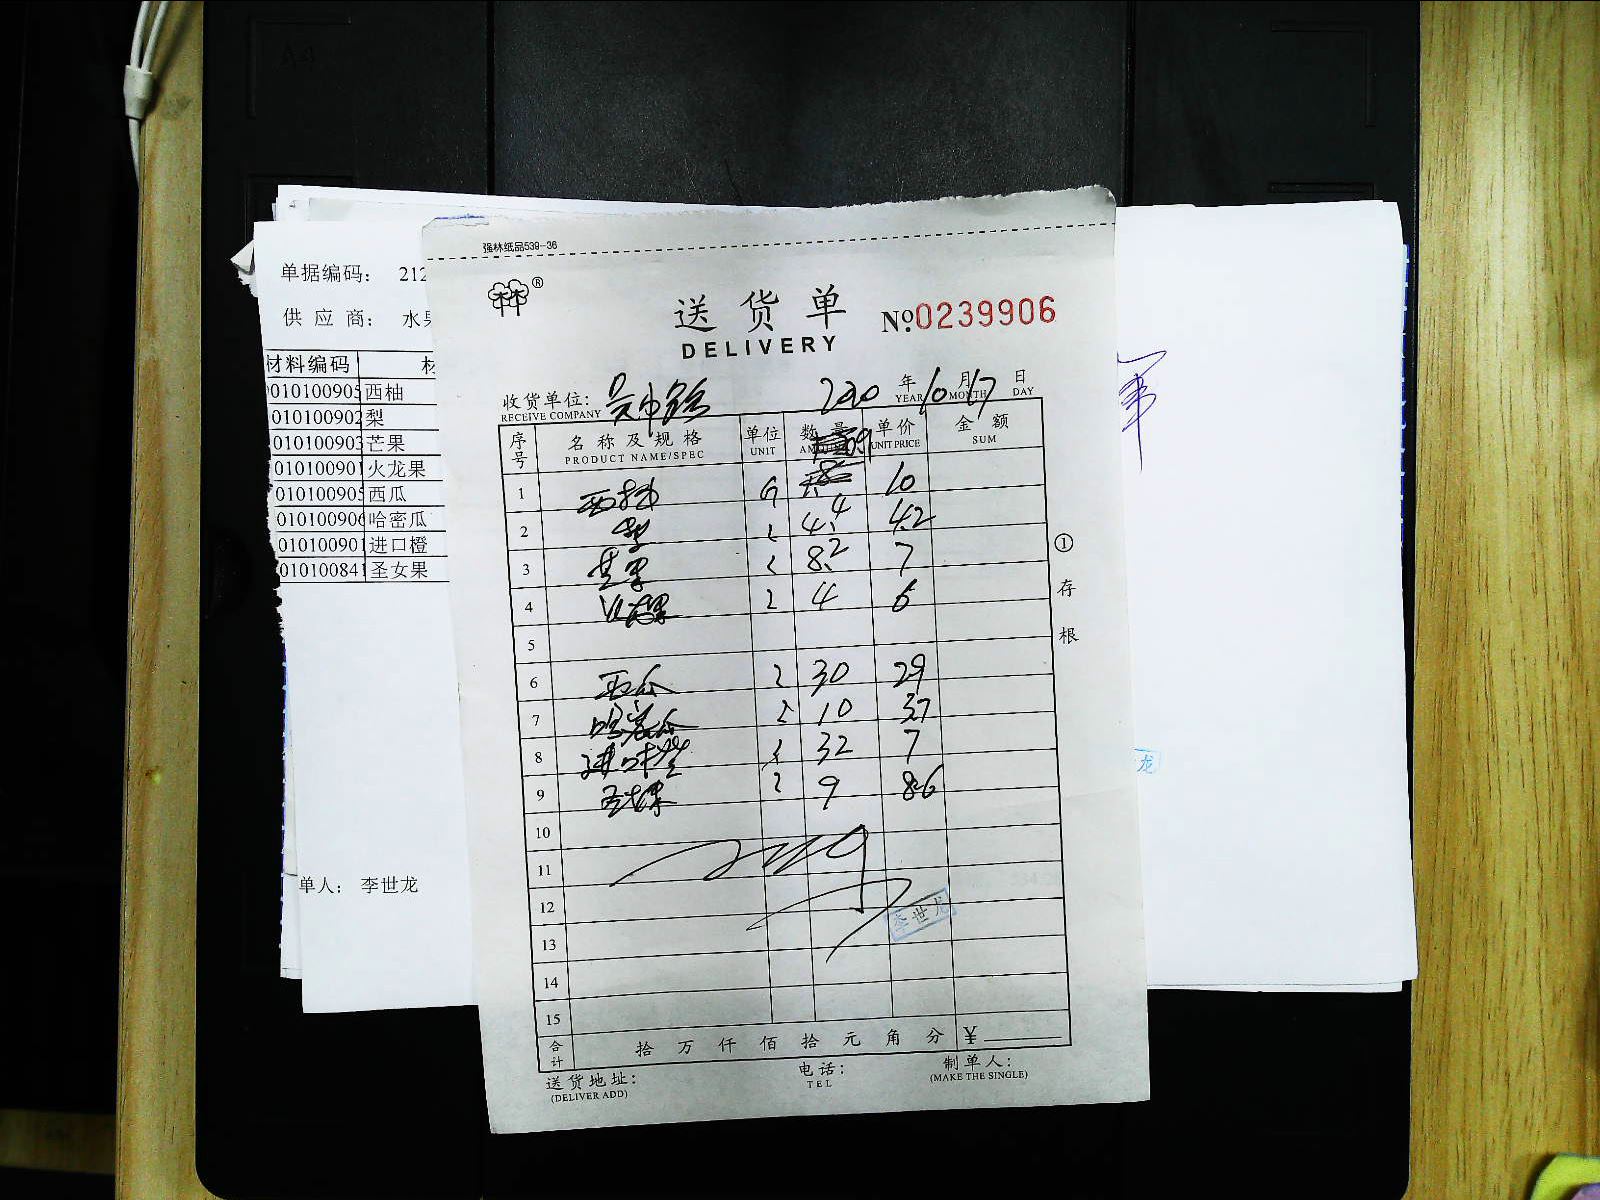 强林纸品539-36
®
送货单
DELIVERY
No.0239906
收货单位: 吴中路 2020 年 10 月 17 日
RECEIVE COMPANY YEAR MONTH DAY
序号 名称及规格 单位 数量 单价 金额
PRODUCT NAME/SPEC UNIT UNIT PRICE SUM
1 西柚 10
2 梨 4.4 4.2
3 芒果 8.2 7
4 火龙果 4 6
5
6 西瓜 30 29
7 哈密瓜 10 37
8 进口橙 32 7
9 圣女果 9 8.6
10
11
12
13
14
15
合计 拾万仟佰拾元角分 ¥
送货地址: 电话: 制单人:
(DELIVER ADD) TEL (MAKE THE SINGLE)
①存根
李世龙
单据编码: 212
供应商: 水果
材料编码 材
010100905 西柚
010100902 梨
010100903 芒果
010100901 火龙果
010100905 西瓜
010100906 哈密瓜
010100901 进口橙
010100841 圣女果
单人: 李世龙
龙